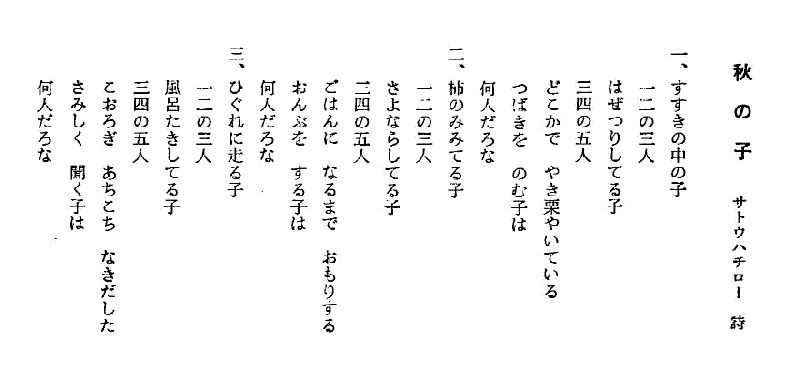 秋の子　サトウハチロー　詩
一、すすきの中の子
一二の三人
はぜつりしてる子
三四の五人
どこかで　やき栗やいている
つばきを　のむ子は
何人だろな
二、柿のみみてる子
一二の三人
さよならしてる子
三四の五人
ごはんに　なるまで　おもりする
おんぶを　する子は
何人だろな
三、ひぐれに走る子
一二の三人
風呂たきしてる子
三四の五人
こおろぎ　あちこち　なきだした
さみしく　聞く子は
何人だろな